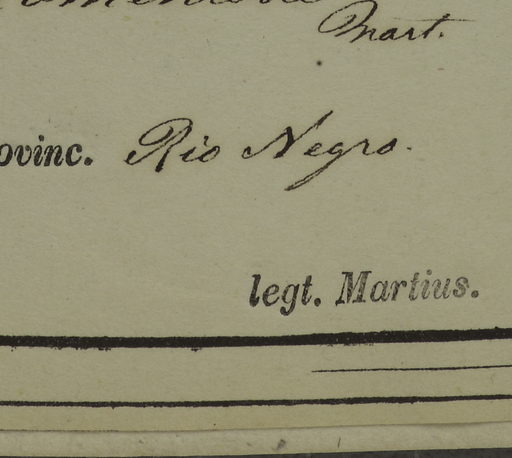 Mart.
ovinc. Rio Negro.
legt. Martius.